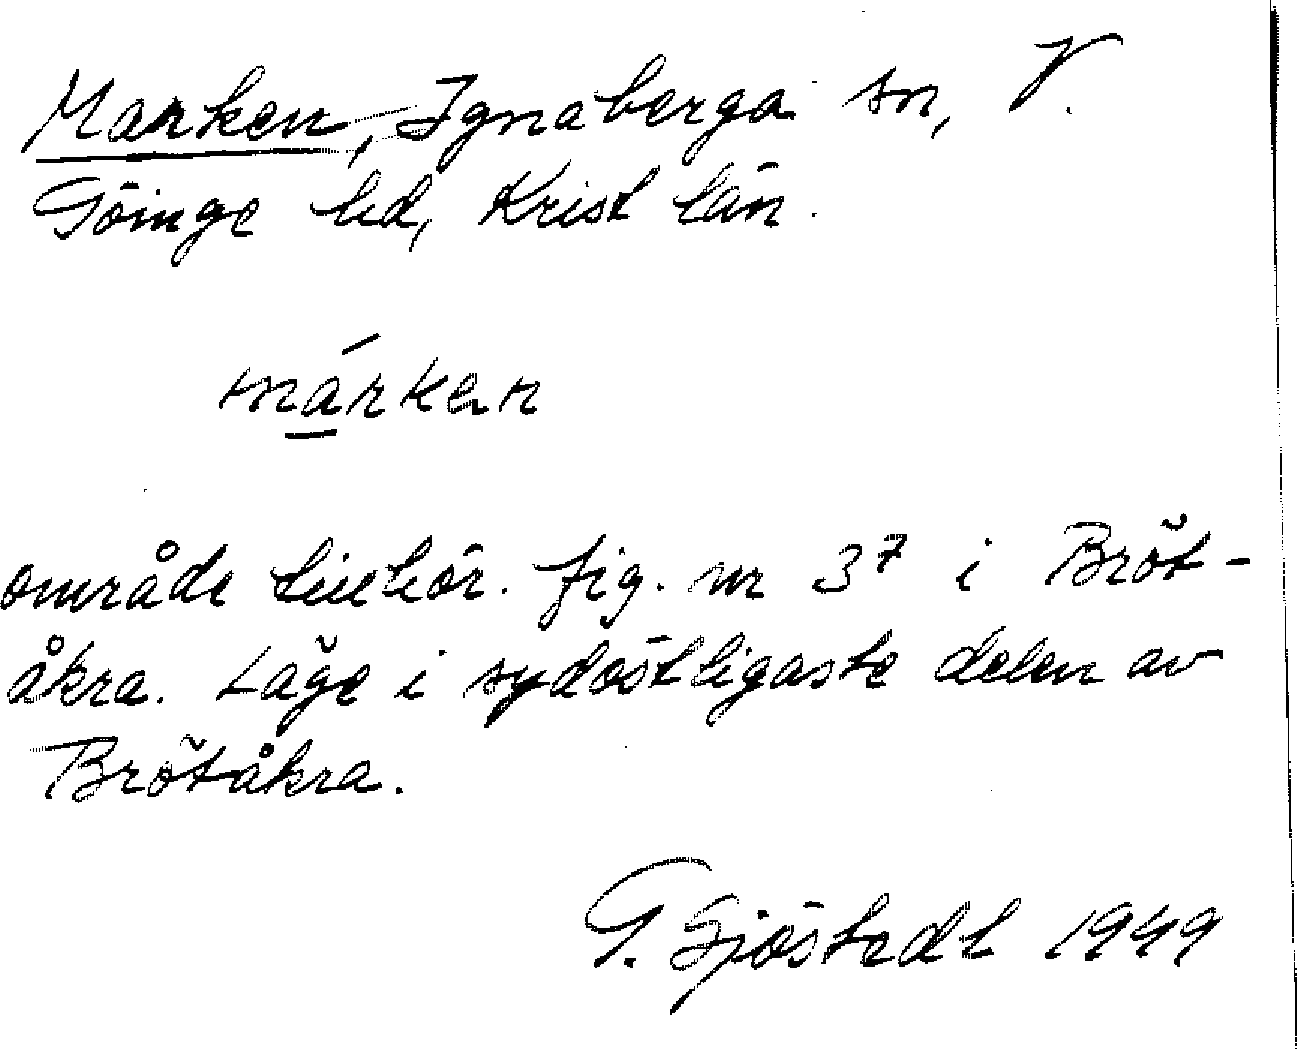 Marken, Ignaberga sn, V.
Göinge hd, Krist län.
márken
område tillhör. fig. nr 37 i Bröt-
åkra. Läge i sydöstligaste delen av
Brötåkra.
G. Sjöstedt 1949